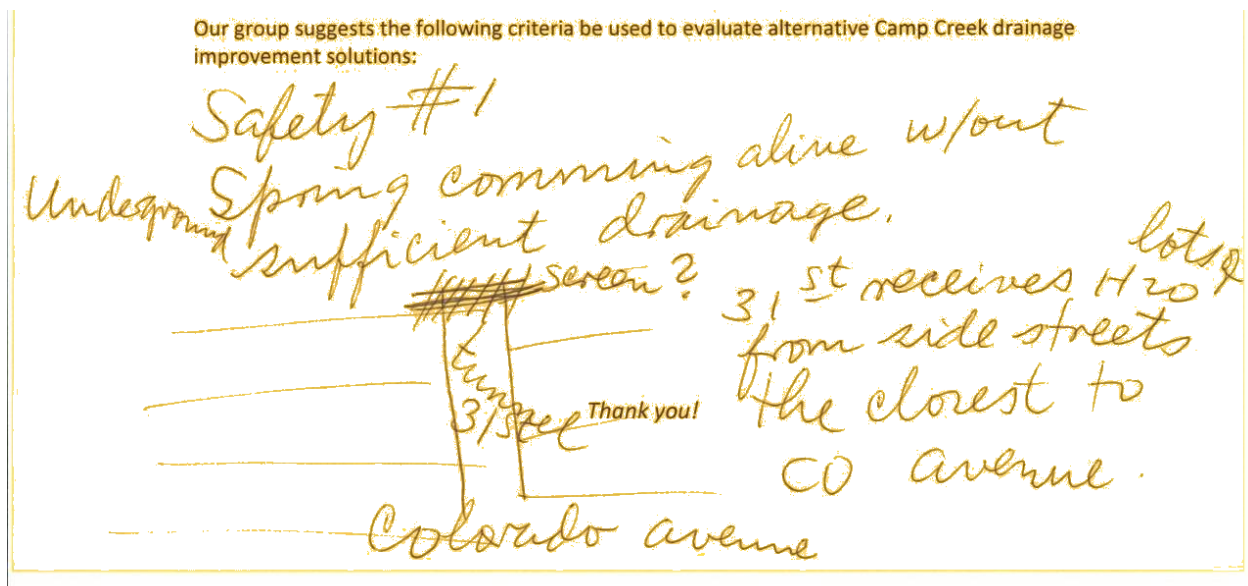 Our group suggests the following criteria be used to evaluate alternative Camp Creek drainage
improvement solutions:
Safety #1
Underground Spring comming alive w/out
sufficient drainage.
screen?
31st receives lots of H2O
from side streets
the closest to
CO avenue.
tunnel
31st
Thank you!
Colorado avenue